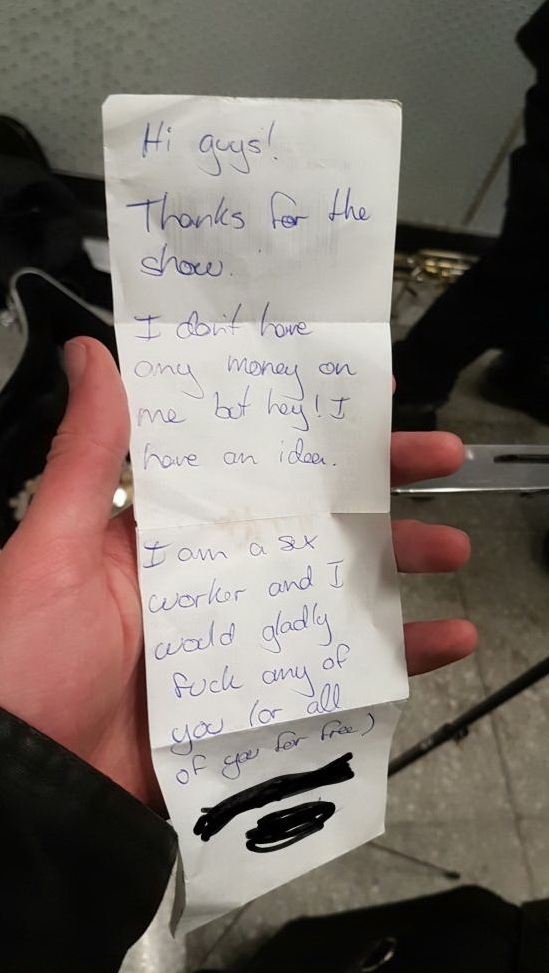 Hi guys!
Thanks for the
show.
I don't have
any money on
me but hey! I
have an idea.
I am a sex
worker and I
would gladly
fuck any of
you (or all
of you for free)